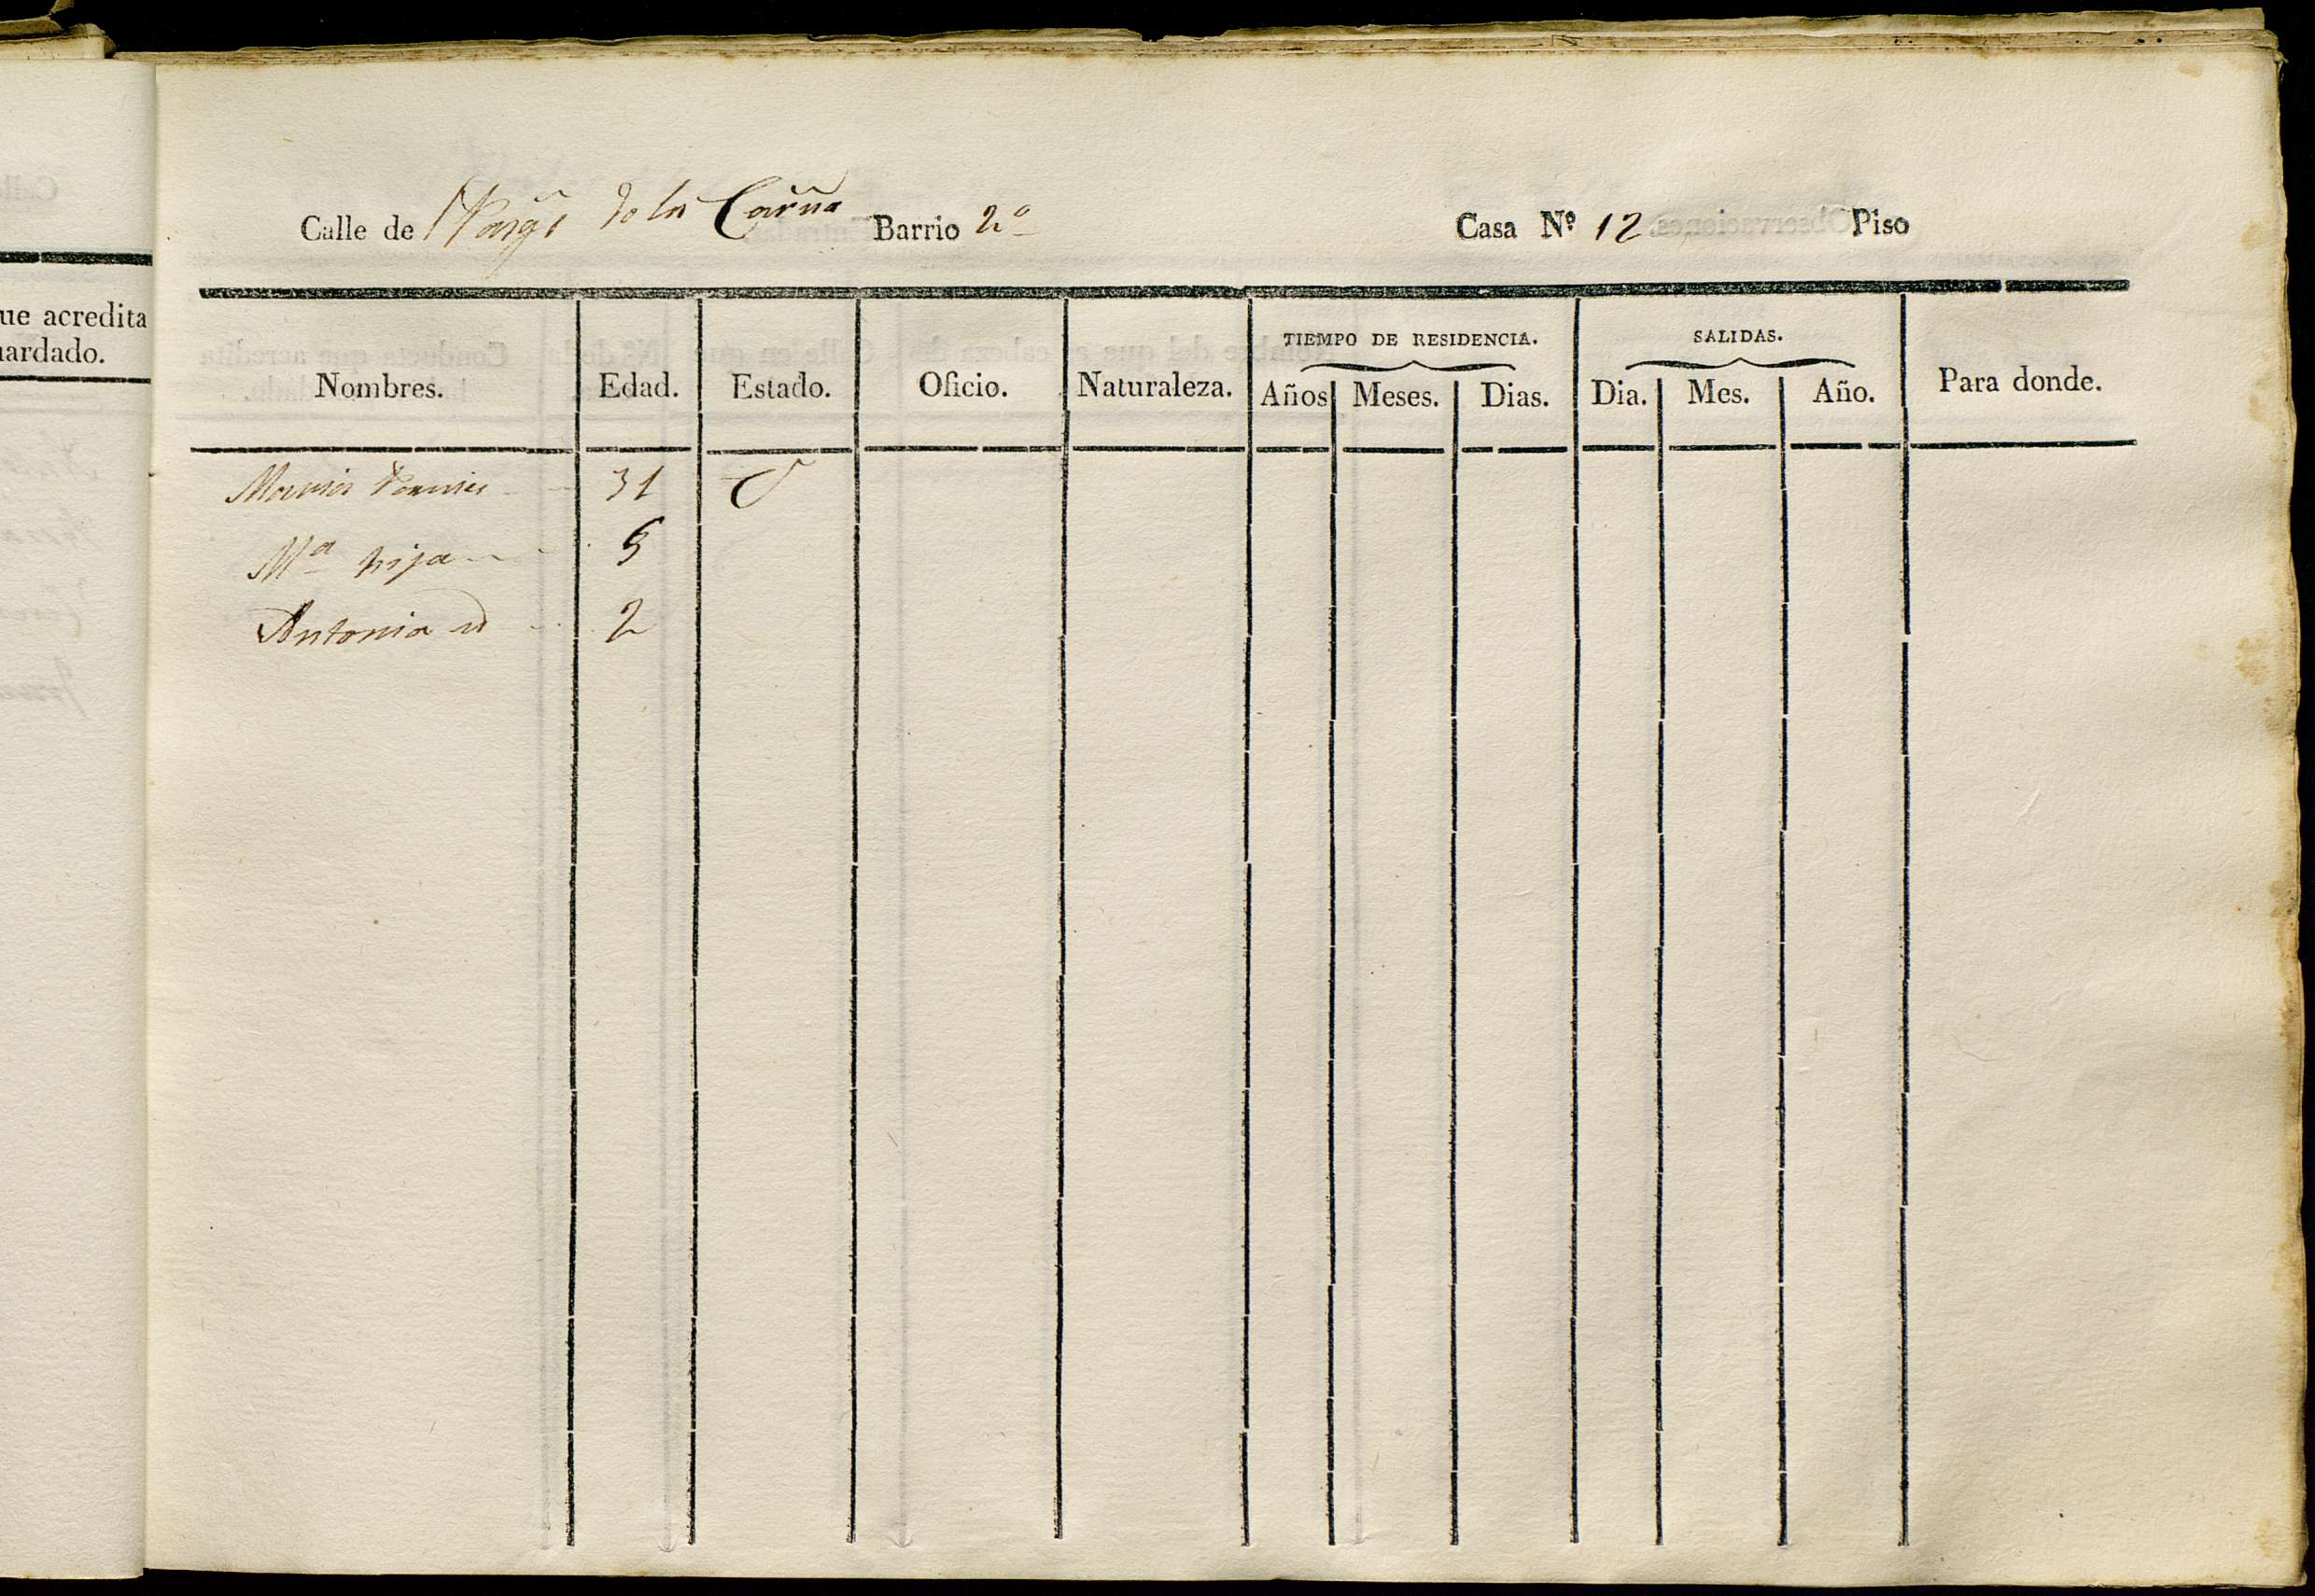 Calle de de la Barrio 2º Casa Nº 12 Piso
ue acredita
ardado.
TIEMPO DE RESIDENCIA. SALIDAS.
Nombres. Edad. Estado. Oficio. Naturaleza. Años Meses. Dias. Dia. Mes. Año. Para donde.
31
Mª hija 5
Antonia id 2